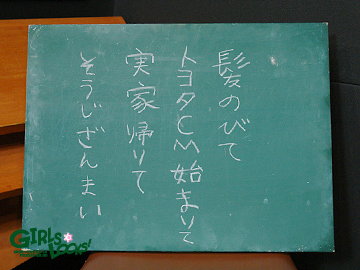 髪のびて
トヨタCM始まりて
実家帰りて
そうじざんまい
GIRLS LOCKS!